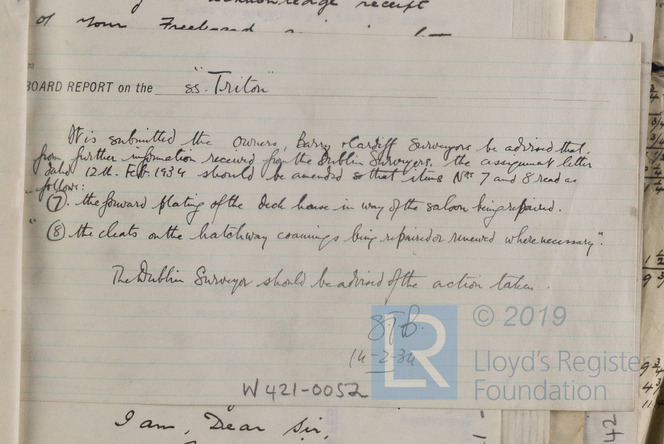 acknowledge receipt
of your Freeboard
BOARD REPORT on the ss. "Triton"
It is submitted the Owners, Barry & Cardiff Surveyors be advised that,
from further information received from the Dublin Surveyors, the assignment letter
dated 12th. Feb. 1934 should be amended so that items Nos 7 and 8 read as
follows:
"(7) the forward plating of the deck house in way of the saloon being repaired.
"(8) the cleats on the hatchway coamings being repaired or renewed where necessary".
The Dublin Surveyor should be advised of the action taken.
14-2-34
LR
© 2019
Lloyd's Register
Foundation
W421-0052
I am, Dear Sir,
42